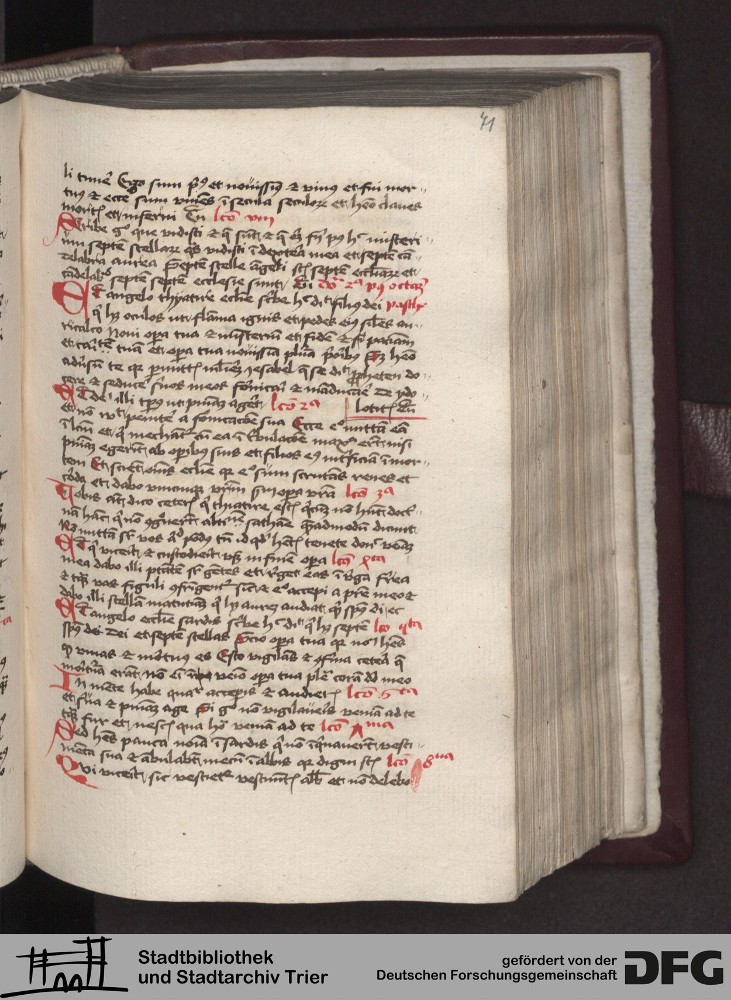 71
li timere Ego sum et novissimus et vivus et fui mor
tuus et ecce sum vivens in secula seculorum et habeo claves
mortis et inferni lco viii
Scribe que vidisti et que sunt et que
septem stellarum quas vidisti in dextera mea et septem can
delabra aurea septem stelle angeli sunt septem ecclesiarum et
candelabra septem septem ecclesie sunt
Et angelo thyatire ecclesie scribe hec dicit filius dei
qui habet oculos ut flamma ignis et pedes eius similes au
ricalco Novi opera tua et ministerium et fidem et patientiam
et caritatem tuam et opera tua novissima plura prioribus habeo
adversum te quia permittis mulierem yesabel que se dicit propheten do
cere et seducere servos meos fornicari et manducare de ydo
Et dedi illi tempus ut penitentiam ageret lco 2a lotitis
et non vult penitere a fornicatione sua Ecce ego mittam eam
in lectum et qui mechantur cum ea in tribulatione maxima erunt nisi
penitentiam egerint ab operibus suis et filios eius interficiam in mor
tem Et scient omnes ecclesie quia ego sum scrutans renes et
corda et dabo unicuique vestrum secundum opera vestra lco 3a
Vobis autem dico ceteris qui thyatire estis quicumque non habent doctri
nam hanc qui non cognoverunt altitudines sathane quemadmodum dicunt
Non mittam super vos aliud pondus tamen id quod habetis tenete donec veniam
Et qui vicerit et custodierit usque in finem opera lco
mea dabo illi potestatem super gentes et reget eas in virga ferrea
et tamquam vas figuli confringentur sicut et ego accepi a patre meo et
dabo illi stellam matutinam qui habet aurem audiat quid spiritus dicat
Et angelo ecclesie sardis scribe hec dicit qui habet septem lco
spiritus dei et septem stellas Scio opera tua quia nomen habes
quod vivas et mortuus es Esto vigilans et confirma cetera que
moritura erant non enim invenio opera tua plena coram deo meo
In mente habe qualiter acceperis et audieris lco
et serva et penitentiam age Si ergo non vigilaveris veniam ad te
tamquam fur et nescies qua hora veniam ad te lco
Sed habes pauca nomina in sardis qui non inquinaverunt vesti
menta sua et ambulabunt mecum in albis quia digni sunt lco 8va
Qui vicerit sic vestietur vestimentis albis et non delebo
Stadtbibliothek
und Stadtarchiv Trier
gefördert von der
Deutschen Forschungsgemeinschaft
DFG